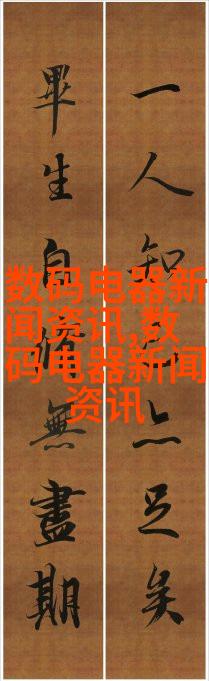 一人知己亦足矣
畢生自修無盡期
数码电器新
闻资讯,数
码电器新闻
资讯